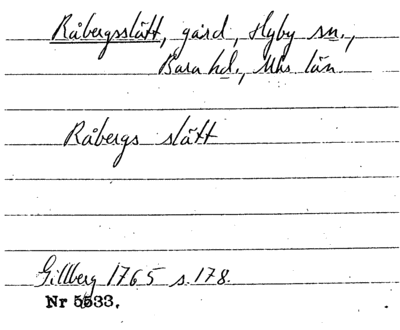 Råbergsslätt, gård, Hyby sn.,
Bara hd., Mhs län.
Råbergs slätt
Gillberg 1765 s. 178.
Nr 5533.